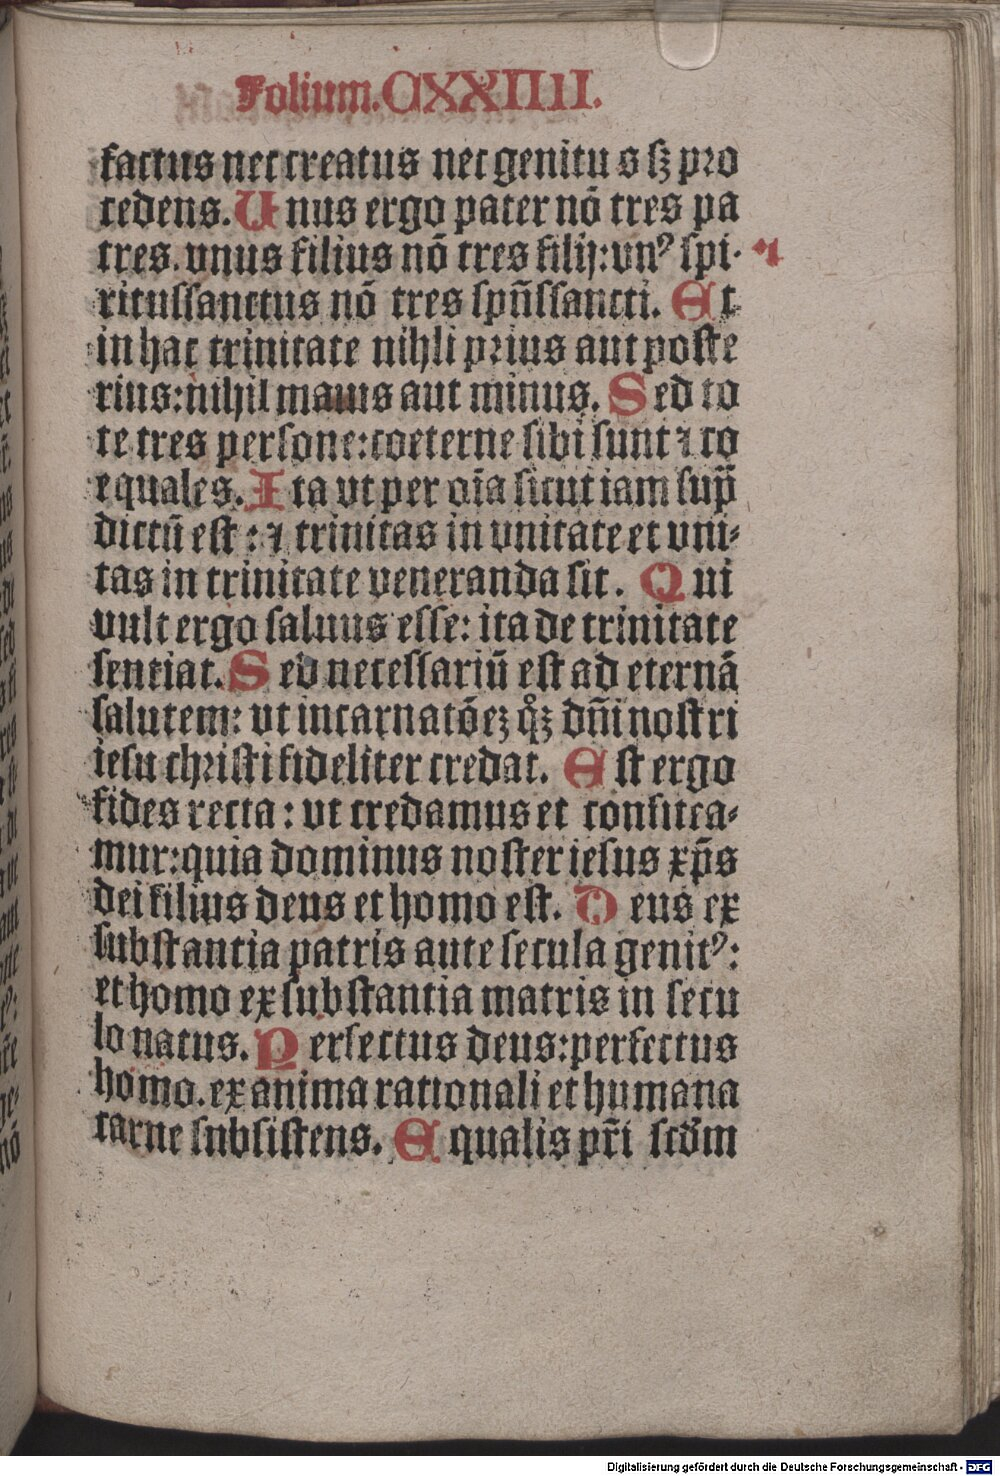 Folium.CXXIIII.
factus nec creatus nec genitu s sꝫ pro
cedens. Unus ergo pater nō tres pa
tres. vnus filius nō tres filij: vnꝰ spi-
ritussanctus nō tres spūssancti. Et
in hac trinitate nihli prius aut poste
rius: nihil maius aut minus. Sed to
te tres persone: coeterne sibi sunt ⁊ co
equales. Ita vt per oīa sicut iam sup̄
dictū est: ⁊ trinitas in vnitate et vni-
tas in trinitate veneranda sit. Qui
vult ergo saluus esse: ita de trinitate
sentiat. Sed necessariū est ad eternā
salutem: vt incarnatōeꝫ qͦꝫ dn̄i nostri
iesu christi fideliter credat. Est ergo
fides recta: vt credamus et confitea-
mur: quia dominus noster iesus xp̄s
dei filius deus et homo est. Deus ex
substantia patris ante secula genitꝰ:
et homo ex substantia matris in secu
lo natus. Perfectus deus: perfectus
homo. ex anima rationali et humana
carne subsistens. Equalis pr̄i scd̄m
Digitalisierung gefördert durch die Deutsche Forschungsgemeinschaft - DFG